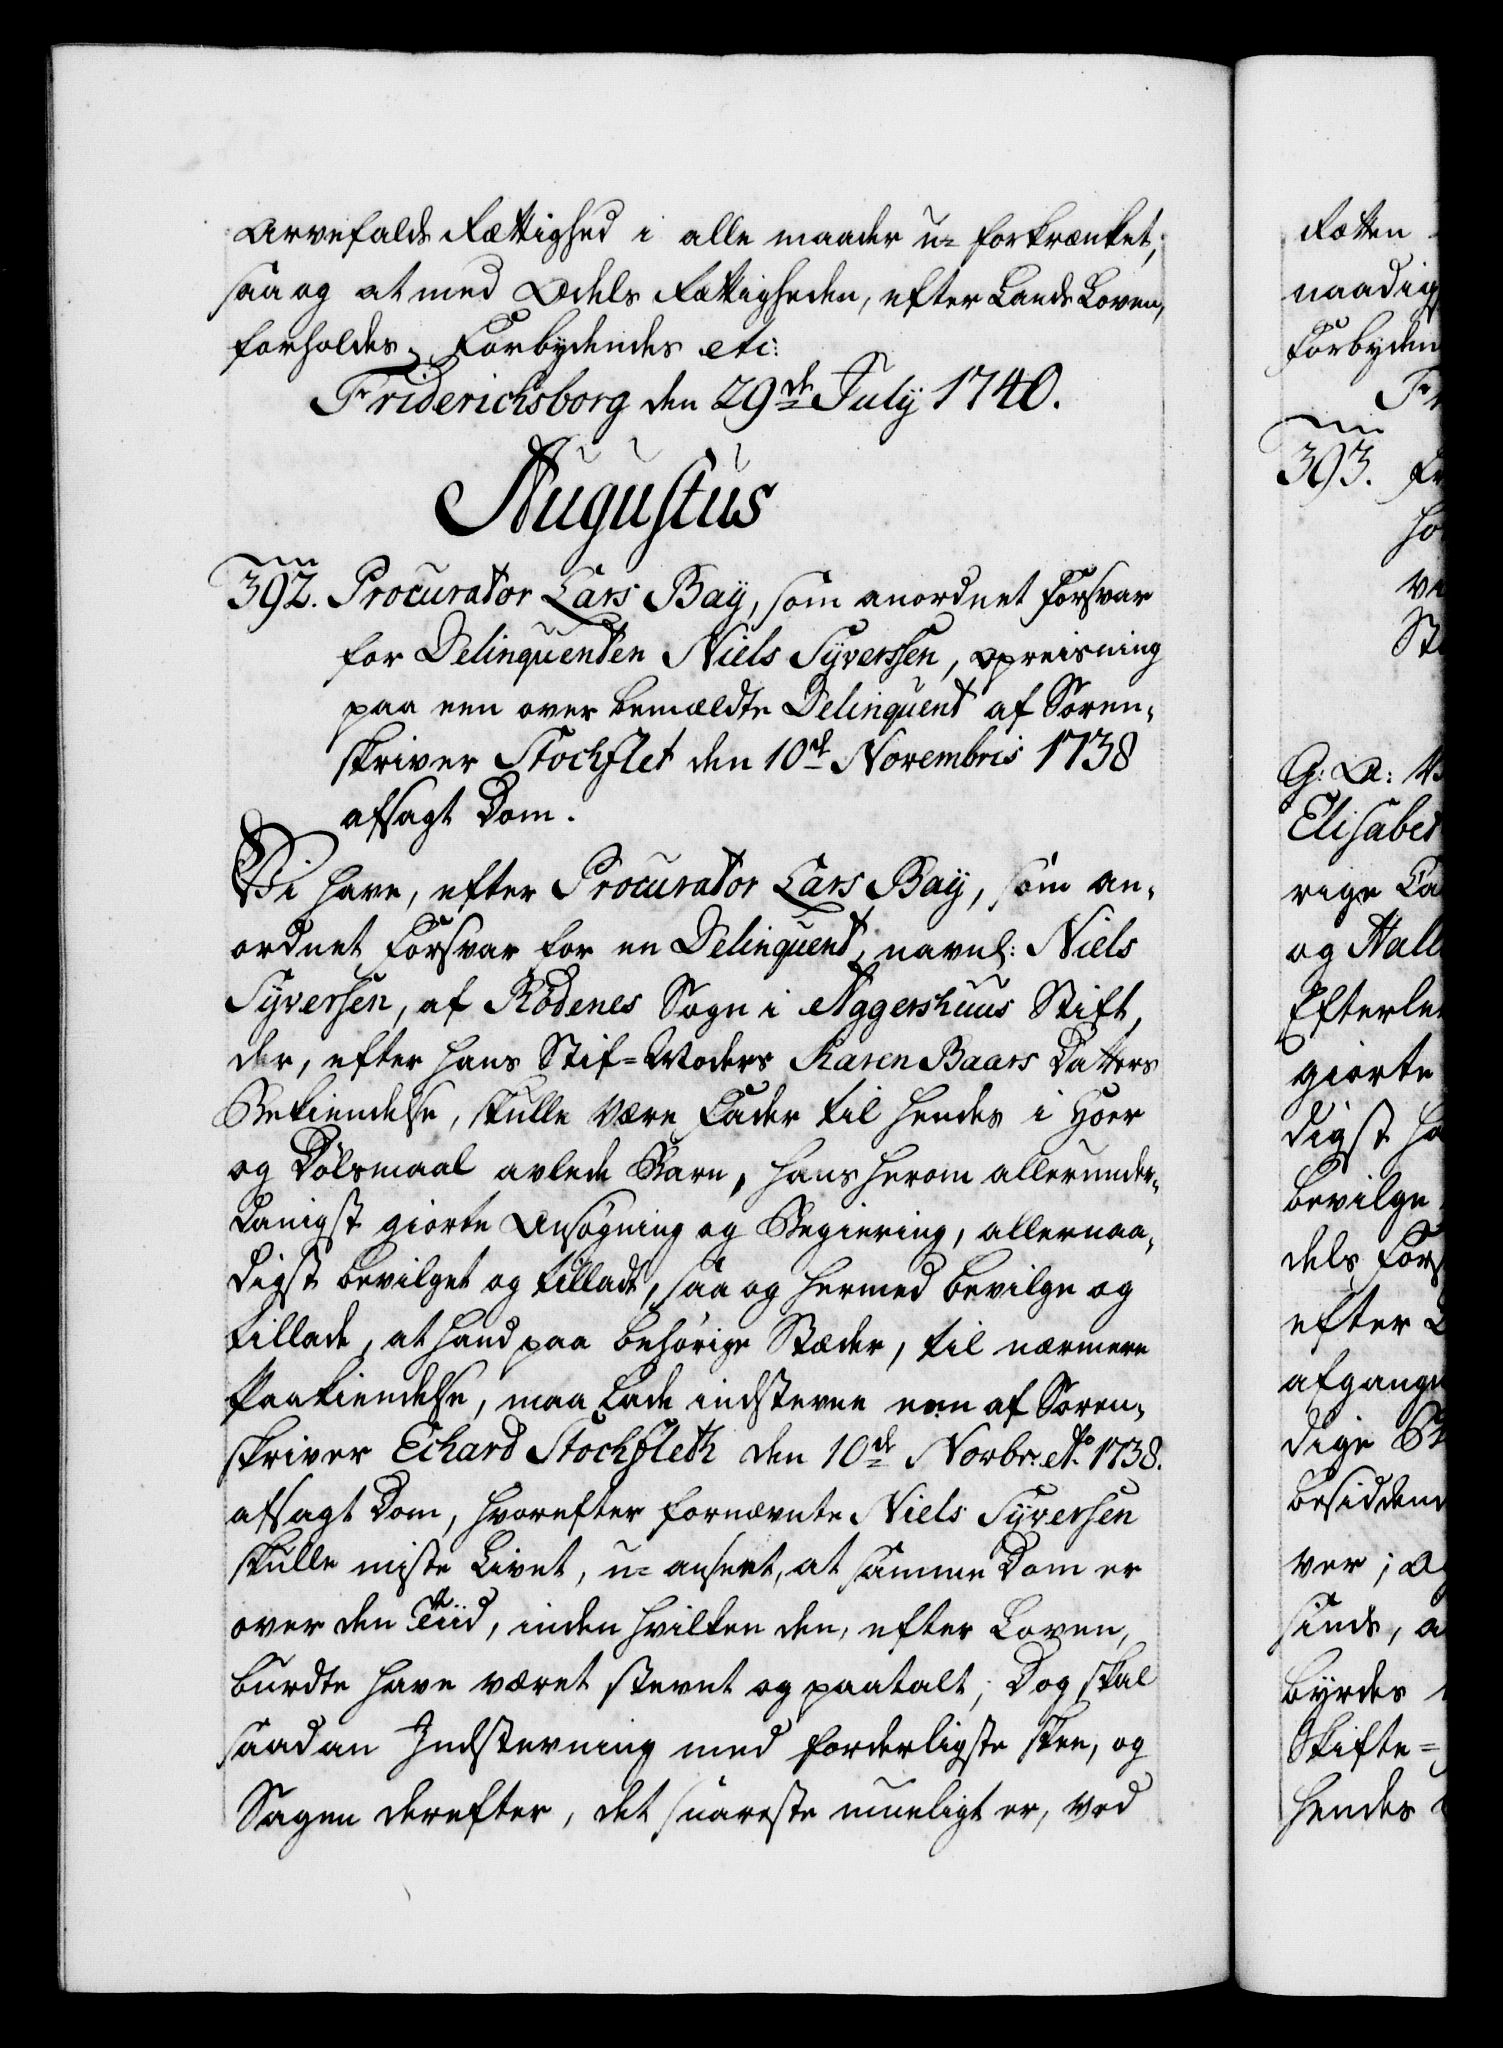 Arvefalds Rettighed i alle maader u= forkrænket,
saa og at med Odels Rettigheden, efter Lands Loven,
forholdes; Forbydendes etc:
Friderichsborg den 29de July 1740.
Augustus
392. Procurator Lars Baÿ, som anordnet Forsvar
for Delinquenten Niels Sÿverssen, opreisning
paa een over bemældte Delinquent af Soren-
skriver Stochflet den 10de Novembris 1738
afsagt Dom.
Vi have, efter Procurator Lars Baÿ, som an-
ordnet Forsvar for en Delinquent, navnl: Niels
Sÿversen, af Rödenes Sogn i Aggershuus Stift,
der, efter hans Stif=Moders Karen Baars Datters
Bekiendelse, skulle være Fader til hendes i Hoer
og Dölsmaal avlede Barn, hans herom allerunder-
danigst giorte Ansögning og Begiering, allernaa-
digst bevilget og tilladt, saa og hermed bevilge og
tillade, at hand paa behörige Stæder, til nærmere
Paakiendelse, maa lade indstevne een af Soren-
skriver Echard Stochfleth den 10de Novbr: Ao 1738.
afsagt Dom, hvorefter fornævnte Niels Sÿversen
skulle miste Livet, u= anseet, at samme Dom er
over den Tiid, inden hvilken den, efter Loven,
burdte have været stevnt og paatalt; Dog skal
saadan Indstevning med forderligste skee, og
Sagen derefter, det snareste mueligt er, ved
Retten
naadig
Forbyden
Fr
393. Fr
G: A: V
Elisabet
rige
og Hall
Efterle
giorte
digst ha
bevilge
dels For
efter L
afgang
dige
besidden
ver; og
sinds, a
byrdes
Skifte=
hendes